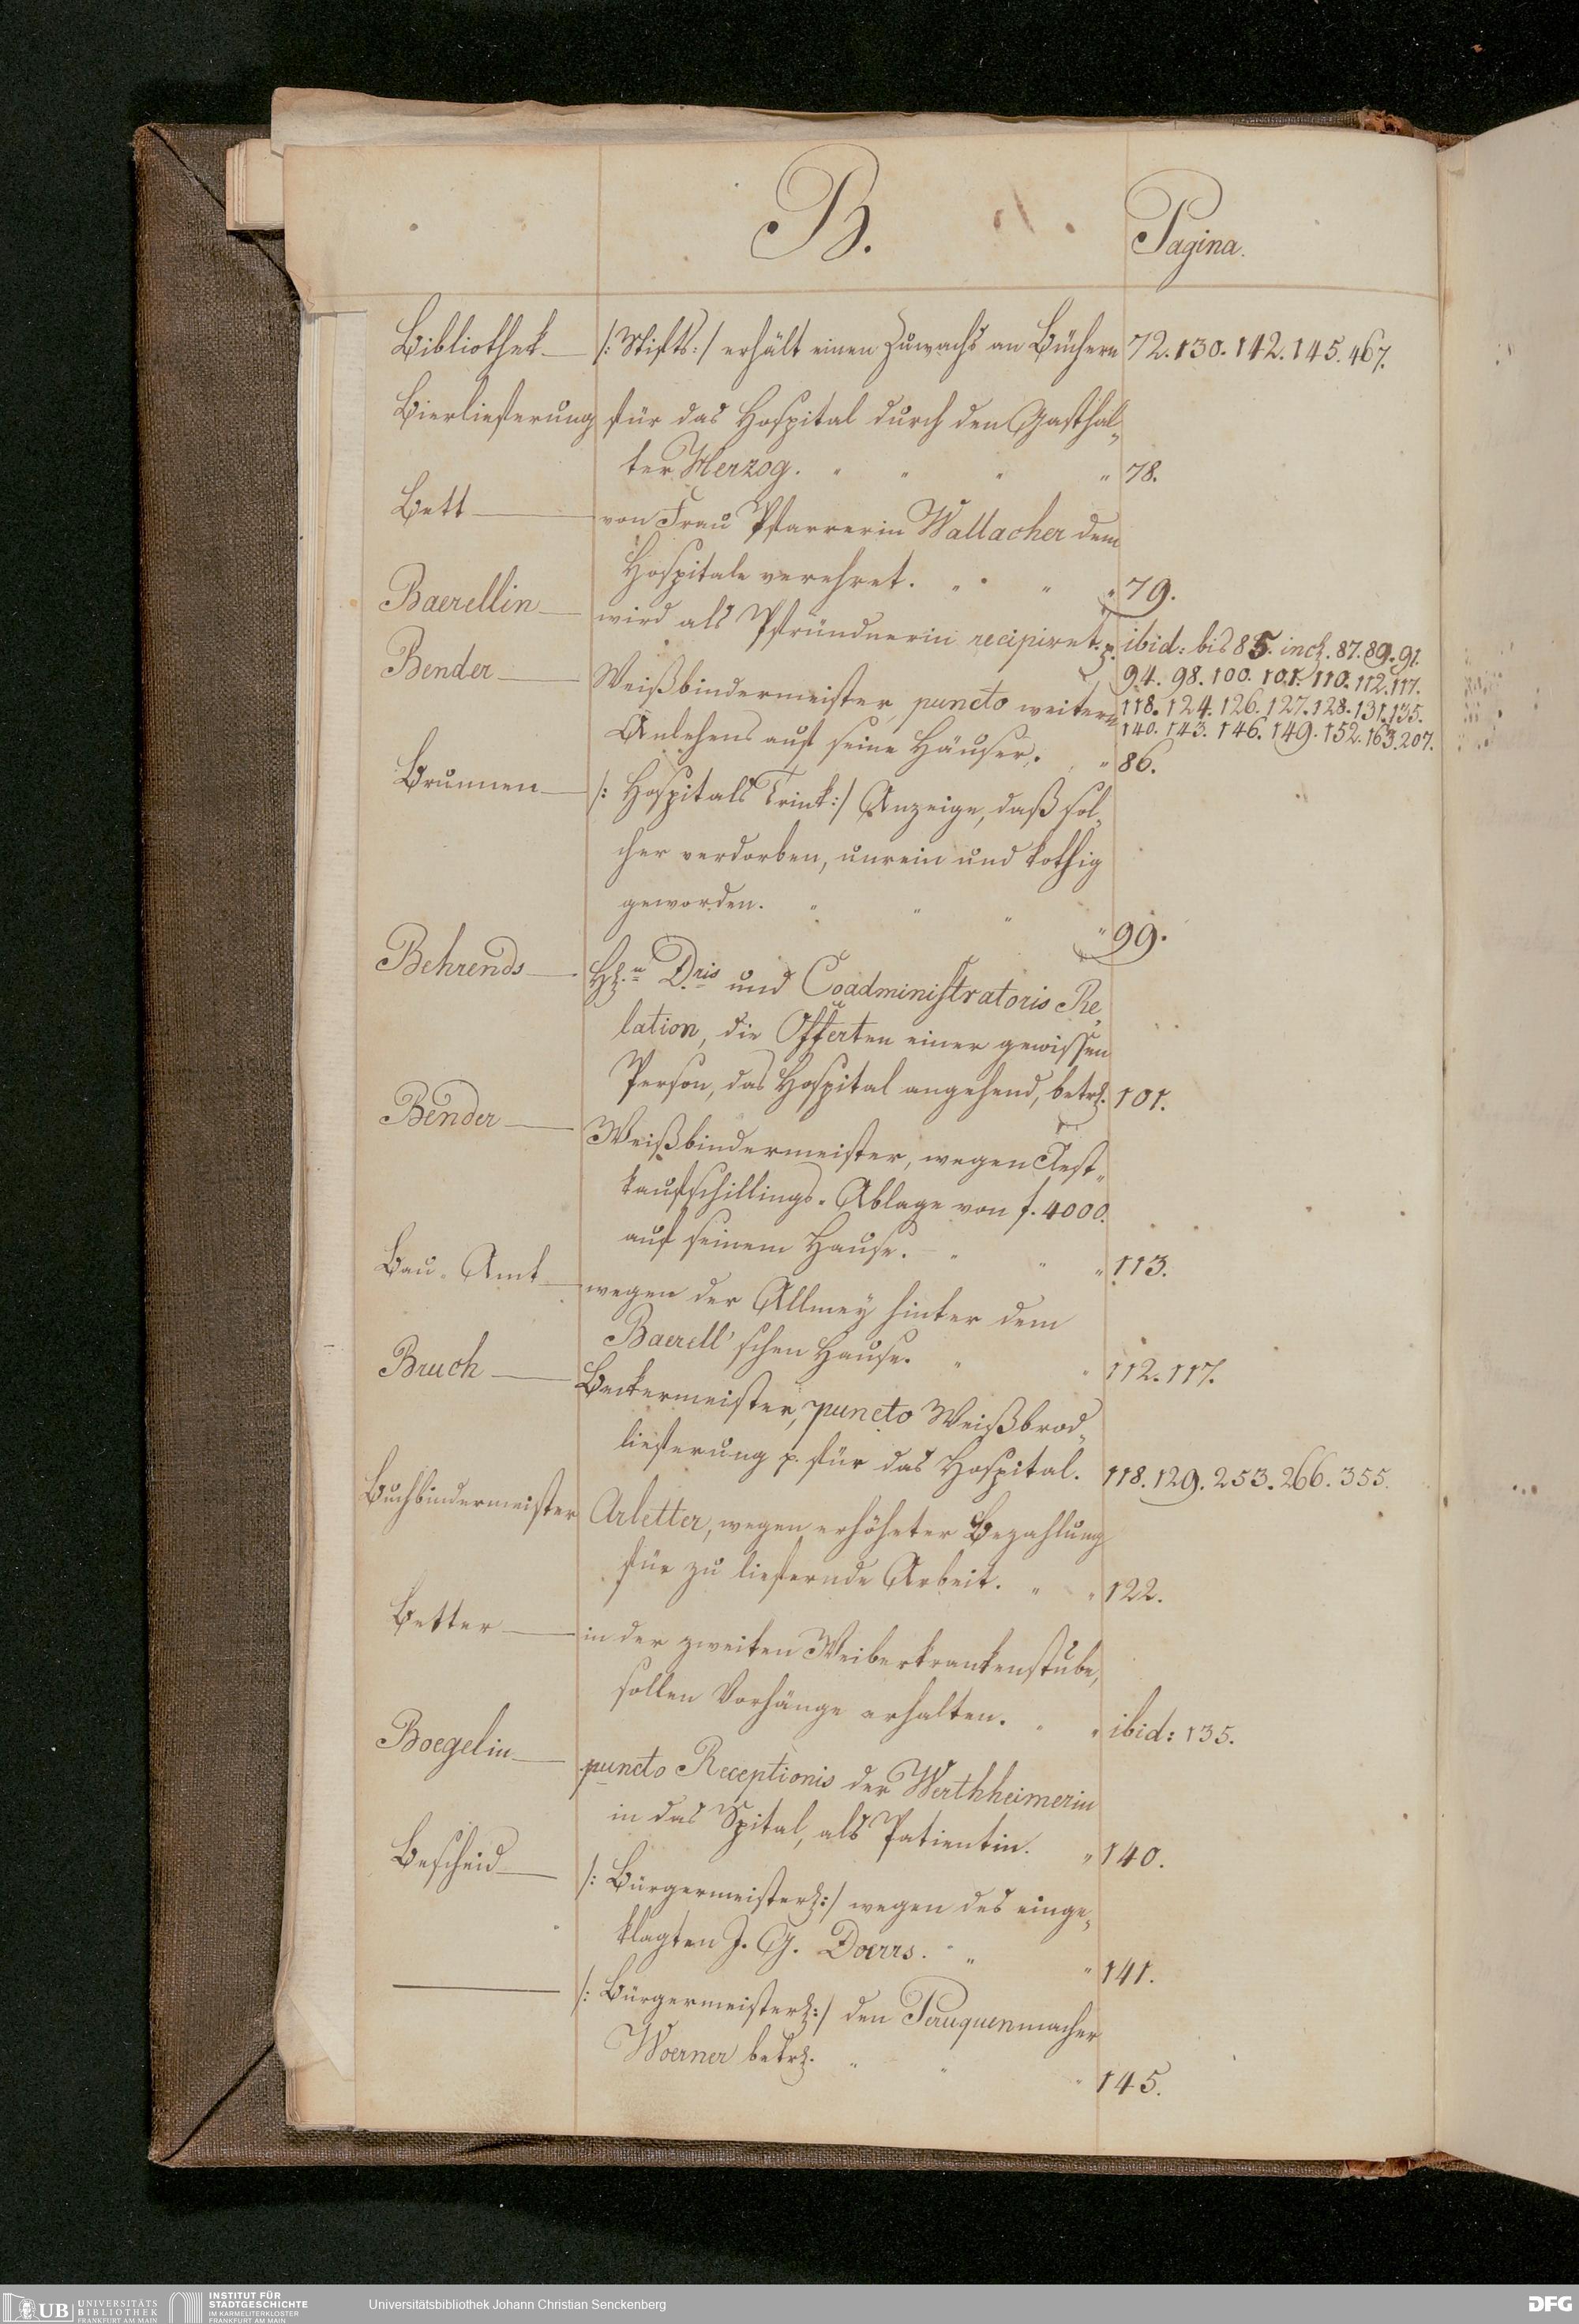 B.
Pagina.
Bibliothek — /: Stifts :/ erhält einen Zuwachs an Büchern 72. 130. 142. 145. 467.
Bierlieferung für das Hospital durch den Gasthal„
ter Herzog. " " " " 78.
Bett — von Frau Pfarrerin Wallacher dem
Hospitale verehret. " " " " 79.
Baerellin — wird als Pfründnerin recipiret. p. ibid: bis 85. incl. 87. 89. 91.
94. 98. 100. 101. 110. 112. 117.
118. 124. 126. 127. 128. 131. 135.
140. 143. 146. 149. 152. 163. 207.
Bender — Weißbindermeister, puncto weitern
Anlehens auf seine Häuser. " 86.
Brunnen — /: Hospitals Trink :/ Anzeige, daß sol„
cher verdorben, unrein und kothig
geworden. " " " " 99.
Behrends — H. n Dris und Coadministratoris Re„
lation, die Offerten einer gewissen
Person, das Hospital angehend, betr. 101.
Bender — Weißbindermeister, wegen Rest„
kaufschillings-Ablage von f. 4000.
auf seinem Hause. " " " 113.
Bau-Amt — wegen der Allmey hinter dem
Baerell'schen Hause. " " 112. 117.
Bruch — Beckermeister, puncto Weißbrod„
lieferung p. für das Hospital. 118. 129. 253. 266. 355.
Buchbindermeister Arletter, wegen erhöheter Bezahlung
für zu liefernde Arbeit. " " 122.
Better — in der zweiten Weiberkrankenstube,
sollen Vorhänge erhalten. " " ibid: 135.
Boegelin — puncto Receptionis der Werthheimerin
in das Spital, als Patientin. " 140.
Bescheid — /: Bürgermeisterl. :/ wegen des einge„
klagten J. G. Doerrs. " " 141.
— /: Bürgermeisterl. :/ den Peruquenmacher
Woerner betr. " " " 145.
UB UNIVERSITÄTS
BIBLIOTHEK
FRANKFURT AM MAIN
INSTITUT FÜR
STADTGESCHICHTE
IM KARMELITERKLOSTER
FRANKFURT AM MAIN
Universitätsbibliothek Johann Christian Senckenberg
DFG